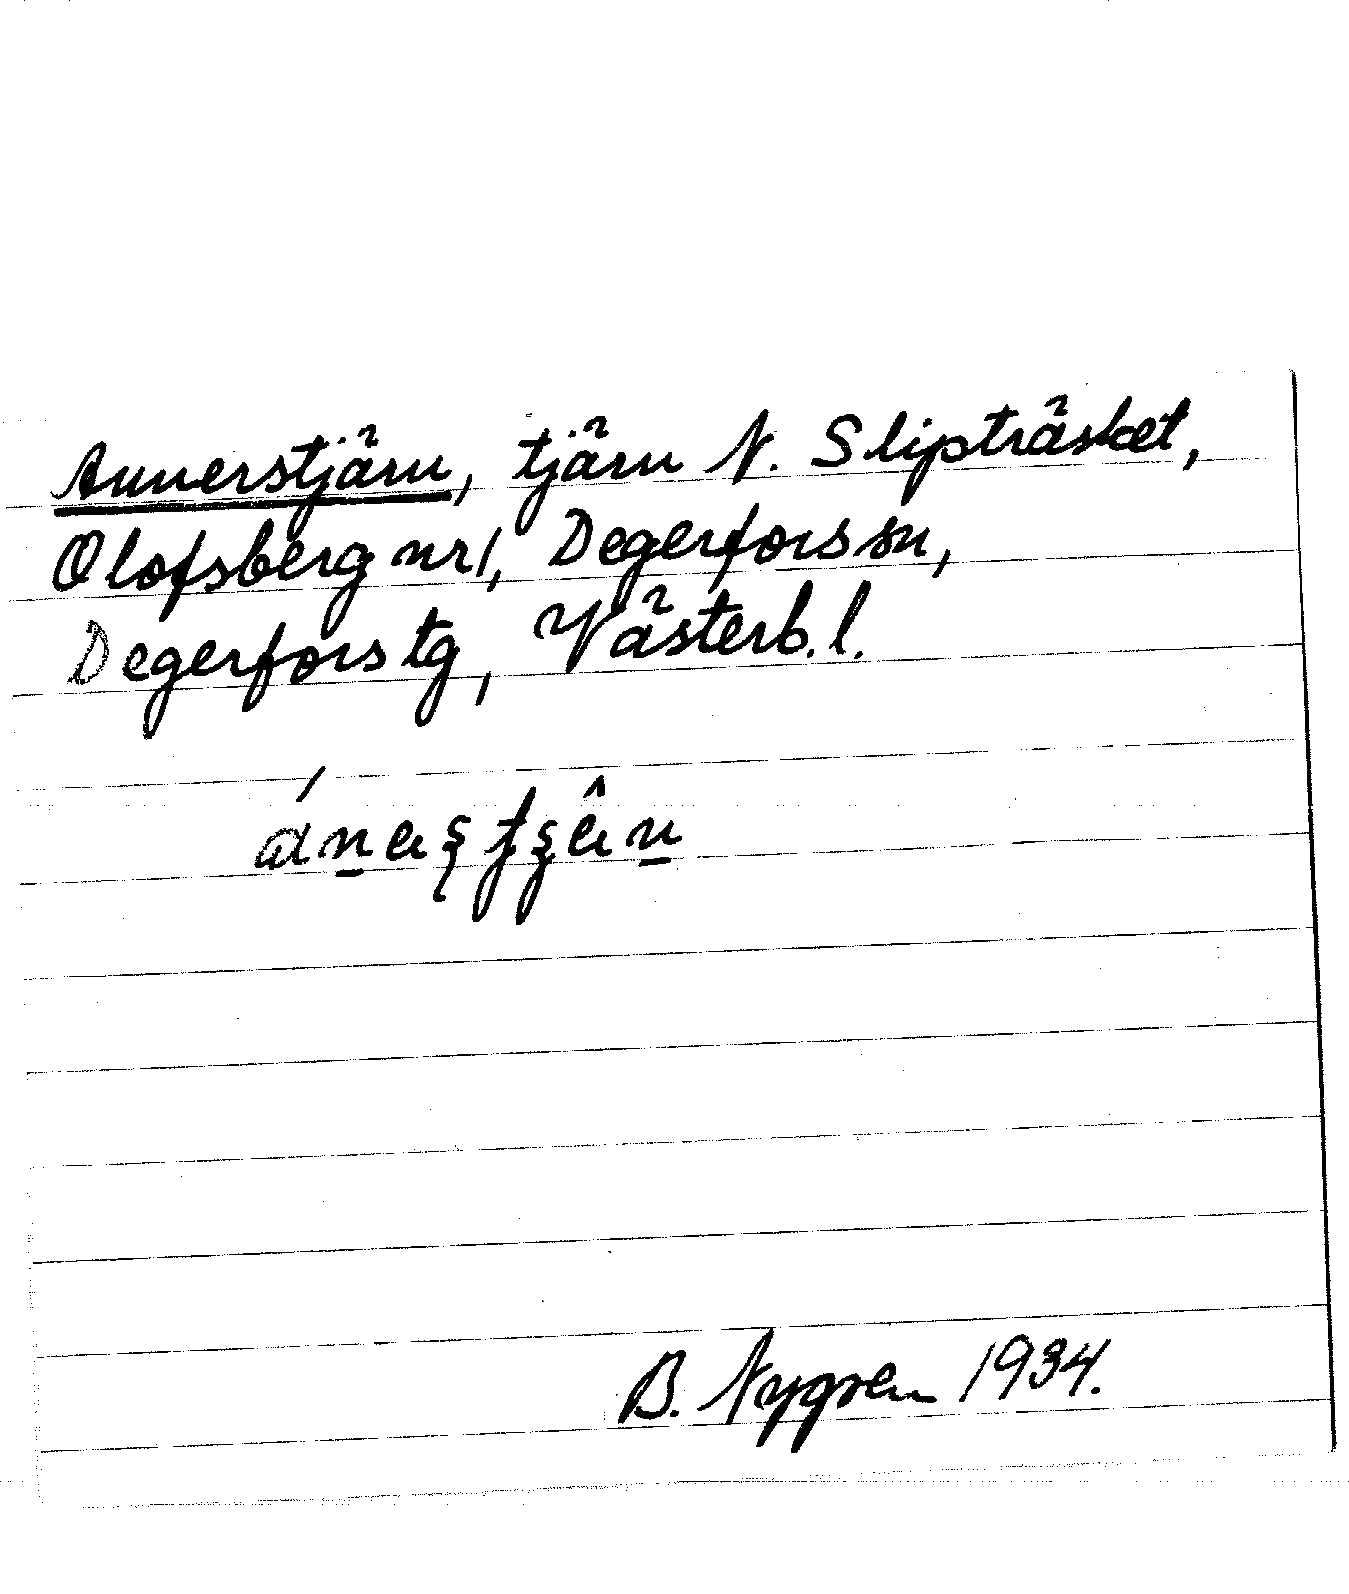 Annerstjärn, tjärn N. Slipträsket,
Olofsberg nr 1, Degerfors sn,
Degerfors tg, Västerb. l.
B. Nygren 1934.